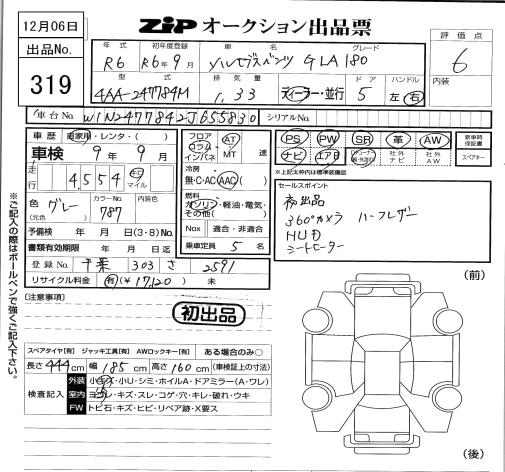 12月06日
出品No.
319
ZIP オークション出品票
評価点
6
内装
年式
R6
初年度登録
R6年9月
車名
メルセデスベンツ GLA180
グレード
型式
4AA-247784M
排気量
1.33
ディーラー・並行
ドア
5
ハンドル
左 右
車台No.
W1N2477842J655830
シリアルNo.
車歴 自家用・レンタ・( )
車検 9年9月
走行
4,554
キロ
マイル
色
(元色)
グレー
カラーNo.
787
内装色
予備検 年 月 日(3・8)No.
書類有効期限 年 月 日迄
登録No. 千葉 303 さ 2591
リサイクル料金 有(¥17,120) 未
フロア
コラム
インパネ
AT
MT
速
冷房
無・C・AC・AAC
燃料
ガソリン・軽油・電気・
その他( )
Nox 適合・非適合
乗車定員 5 名
PS PW SR 革 AW
ナビ エアB
社外
ナビ
社外
AW
新車時
保証書
スペアキー
※上記太枠内は標準装備品
セールスポイント
初出品
360°カメラ ハーフレザー
HUD
シートヒーター
[注意事項]
初出品
スペアタイヤ[有] ジャッキ工具[有] AWロックキー[有] ある場合のみ○
長さ 444cm 幅 185cm 高さ 160cm (車検証上の寸法)
検査記入
外装 小キズ・小U・シミ・ホイルA・ドアミラー(A・ワレ)
室内 ヨゴレ・キズ・スレ・コゲ・穴・キレ・破れ・ウキ
FW トビ石・キズ・ヒビ・リペア跡・X要ス
(前)
(後)
※ご記入の際はボールペンで強くご記入下さい。